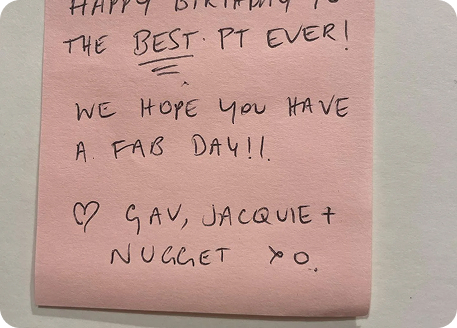 HAPPY BIRTHDAY TO
THE BEST PT EVER!
WE HOPE YOU HAVE
A FAB DAY!!
♡ GAV, JACQUIE +
NUGGET XO.